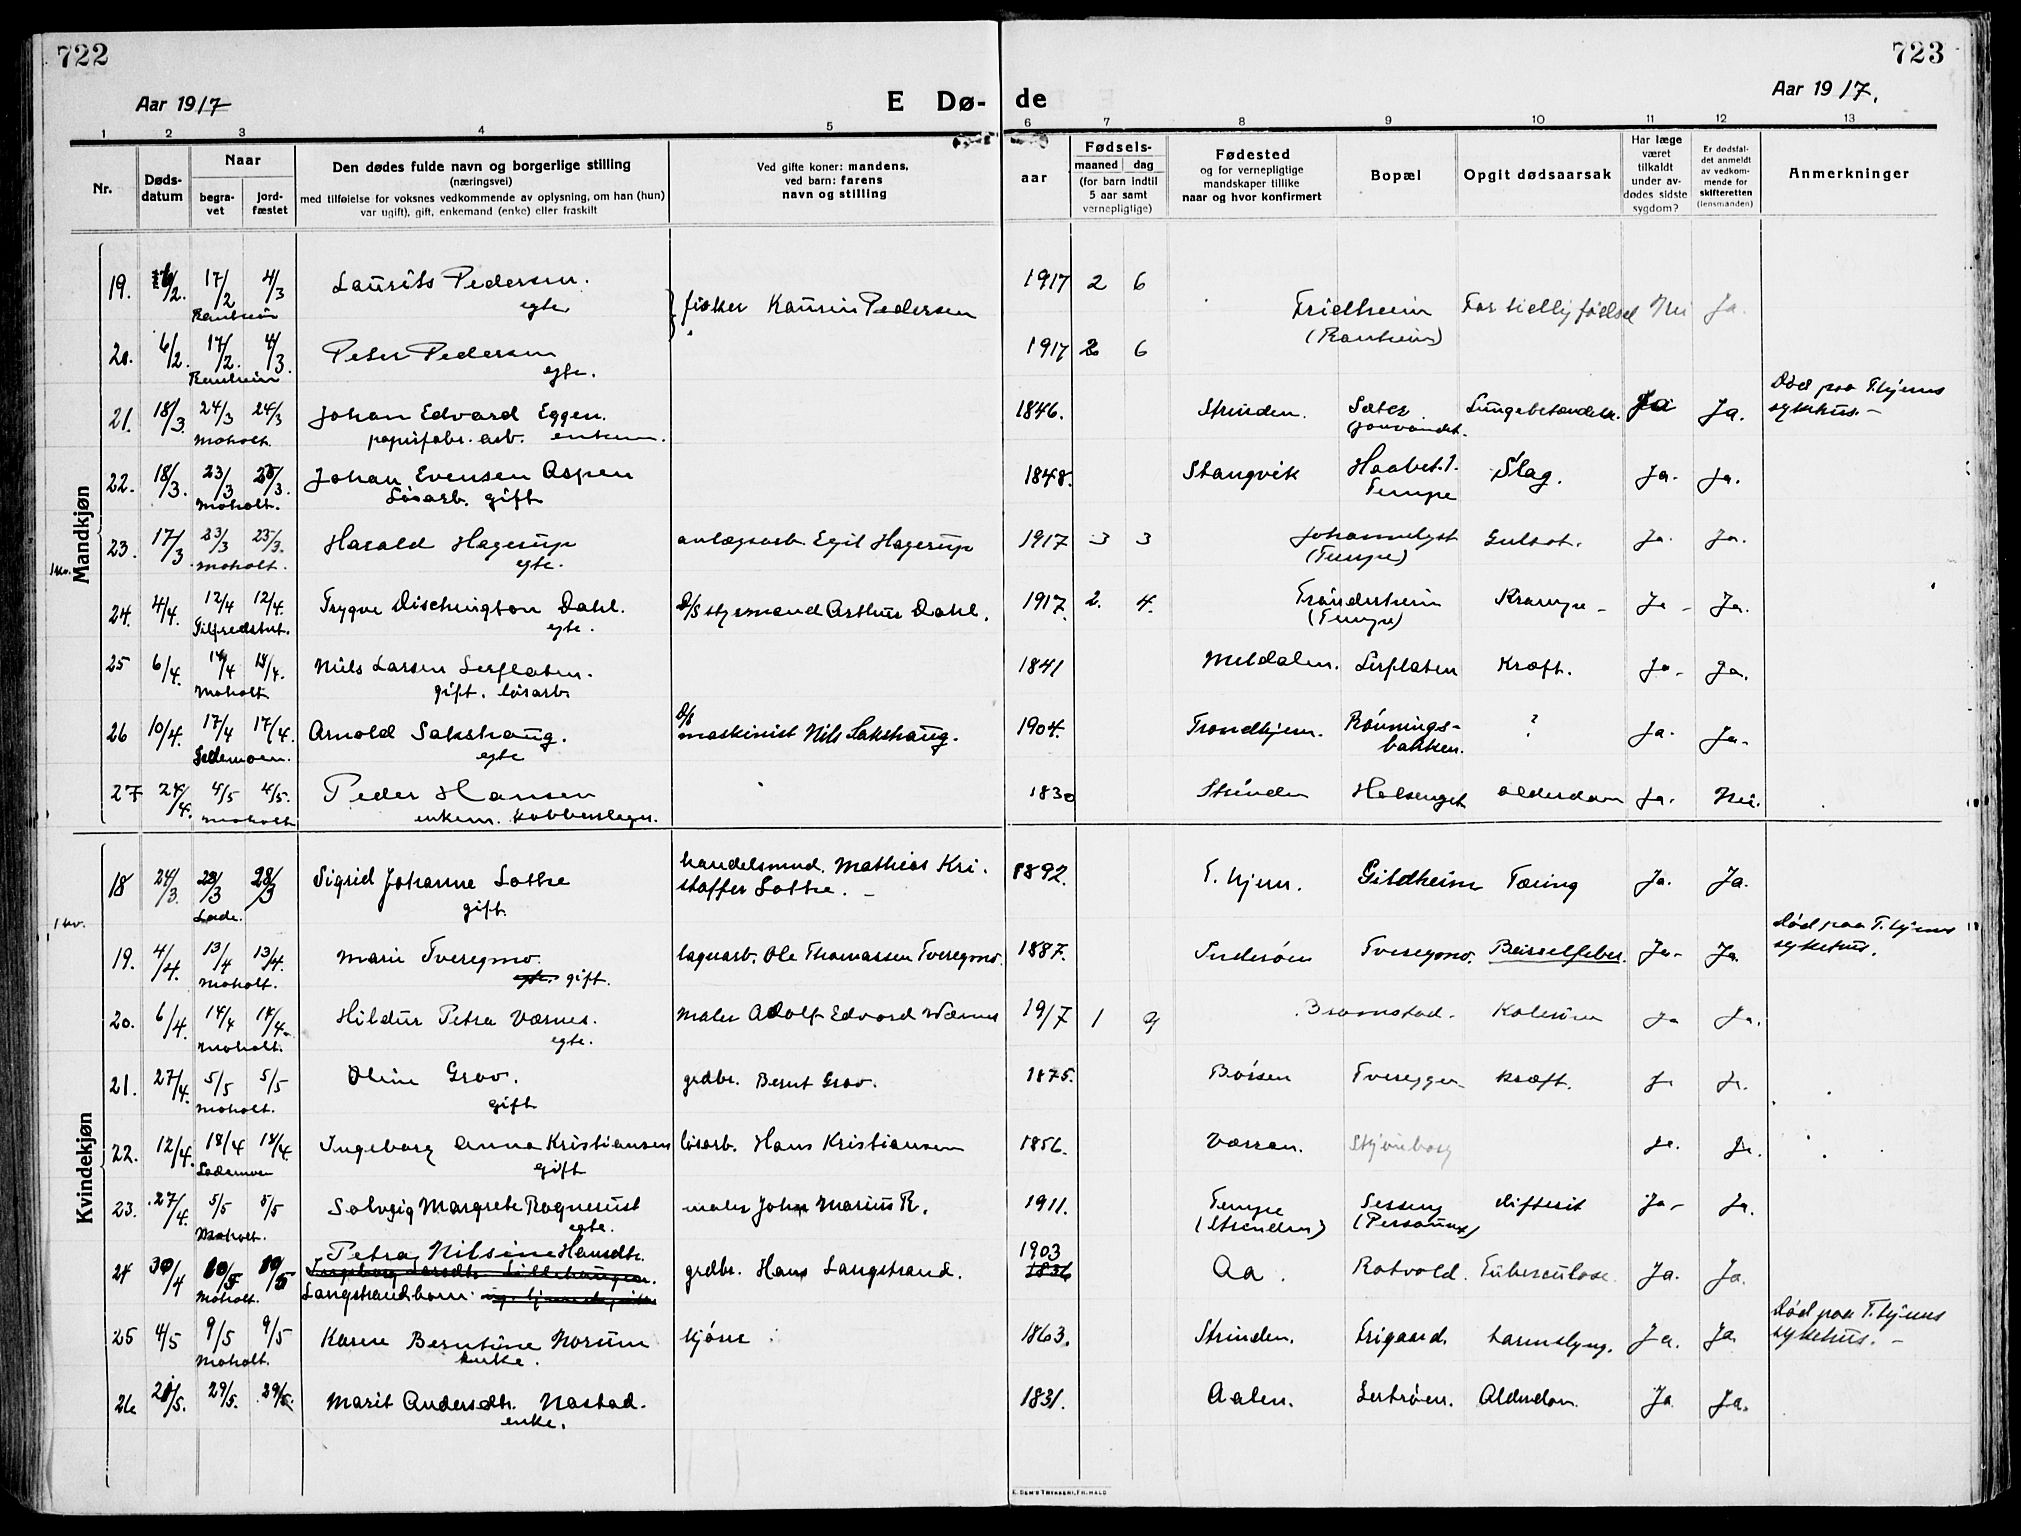 722
723
Aar 1917
E Dø-
de
Aar 1917.
1 2 3 4 5 6 7 8 9 10 11 12 13
Nr.
Døds-
datum
Naar
begra-
vet
jord-
fæstet
Den dødes fulde navn og borgerlige stilling
(næringsvei)
med tilføielse for voksnes vedkommende av oplysning, om han (hun)
var ugift), gift, enkemand (enke) eller fraskilt
Ved gifte koner: mandens,
ved barn: farens
navn og stilling
aar
Fødsels-
maaned dag
(for barn indtil
5 aar samt
vernepligtige)
Fødested
og for vernepligtige
mandskaper tillike
naar og hvor konfirmert
Bopæl
Opgit dødsaarsak
Har læge
været
tilkaldt
under av-
dødes sidste
sygdom?
Er dødsfal-
det anmeldt
av vedkom-
mende for
skifteretten
(lensmanden)
Anmerkninger
Mandkjøn
19. 6/2. 17/2 4/3 Laurits Pedersen. 1917 2 6
Ranheim egte fisker Kaurin Pedersen Fridheim For tidlig fødsel Nei Ja.
(Ranheim)
20. 6/2. 17/2. 4/3. Peter Pedersen 1917 2 6
Ranheim egte.
21. 18/3 24/3 24/3 Johan Edvard Eggen. 1846. Strinden. Sæter Lungebetændelse. Ja Ja. Død paa T.hjems
Moholt. papirfabr. arb. enkem. Jonvandet. sykehus.-
22. 18/3. 23/3 23/3. Johan Evensen Aspen 1848. Stangvik Haabet.1. Slag. Ja. Ja.
Moholt. Løsarb. gift Tempe
23. 17/3 23/3 23/3. Harald Hagerup anlægsarb. Egil Hagerup 1917 3 3 Johannelyst Gulsot. Ja. Ja.
Moholt. egte. (Tempe)
1 kv.
24. 4/4. 12/4 12/4. Trygve Dischington Dahl. D/S styrmand Arthur Dahl. 1917. 2. 4. Trønderheim Krampe - Ja - Ja.
egte. (Tempe)
25 6/4. 14/4 14/4. Nils Larsen Lerflaten. 1841 Meldalen. Lerflaten Kræft. Ja- Ja.
Moholt gift. løsarb.
26 10/4. 17/4 17/4. Arnold Sakshaug. D/S maskinist Nils Sakshaug. 1904. Trondhjem. Rønnings- ? Ja. Ja-
egte bakken.
27 24/4. 4/5 4/5. Peder Hansen 1830 Strinden alderdom Ja. Nei.
Moholt enkem. kobberslager.
Kvindekjøn
18 24/3. 28/3 28/3 Sigrid Johanne Lothe handelsmnd. Mathias Kri- 1892. T.hjem. Gildheim Tæring Ja. Ja.
Lade. gift. stoffer Lothe. -
1 kv.
19. 4/4. 13/4 13/4. Marie Tveregmo. lagerarb. Ole Thomassen Tveregmo. 1887. Inderøen Tveregmo. Barselfeber. Ja- Ja Død paa T.hjems
Moholt. egte. gift. sykehus.
20. 6/4. 14/4 14/4. Hildur Petra Værnes. maler Adolf Edvard Værnes 1917 1 9 Bromstad. Kolerine Ja Ja.
Moholt. egte.
21. 27/4. 5/5 5/5 Oline Grav. grdbr. Bernt Grav. 1875. Børsen kræft. Ja Ja.
Moholt. gift
22. 12/4. 18/4 18/4. Ingeborg Anna Kristiansen løsarb. Hans Kristiansen 1856. Værran. Skjøneborg Ja. Ja.
Lademoen gift
23. 27/4. 5/5 5/5 Solveig Margrete Rognerust maler Johan Marius R. 1911. Tempe difterit Ja- Ja.
Moholt. egte. (Strinden)
Petra Nilsine Hansdtr. 1903
24 30/4 10/5 10/5 grdbr. Hans Langstrand. 1836 Aa. Rotvold. Tuberculose. Ja. Ja.
Moholt. Langstrand. barn.
25 4/5 9/5 9/5 Karen Berntine Norum 1863. Strinden. Frigaard. tarmslyng. Ja. Ja. Død paa T.hjems
Moholt. enke. sykehus.-
26 21/5. 29/5. 29/5. Marit Andersdtr. Nastad. 1831. Aalen. Lertrøen. Alderdom. Ja Ja.
enke.
E. SEM'S TRYKKERI, FR.HALD